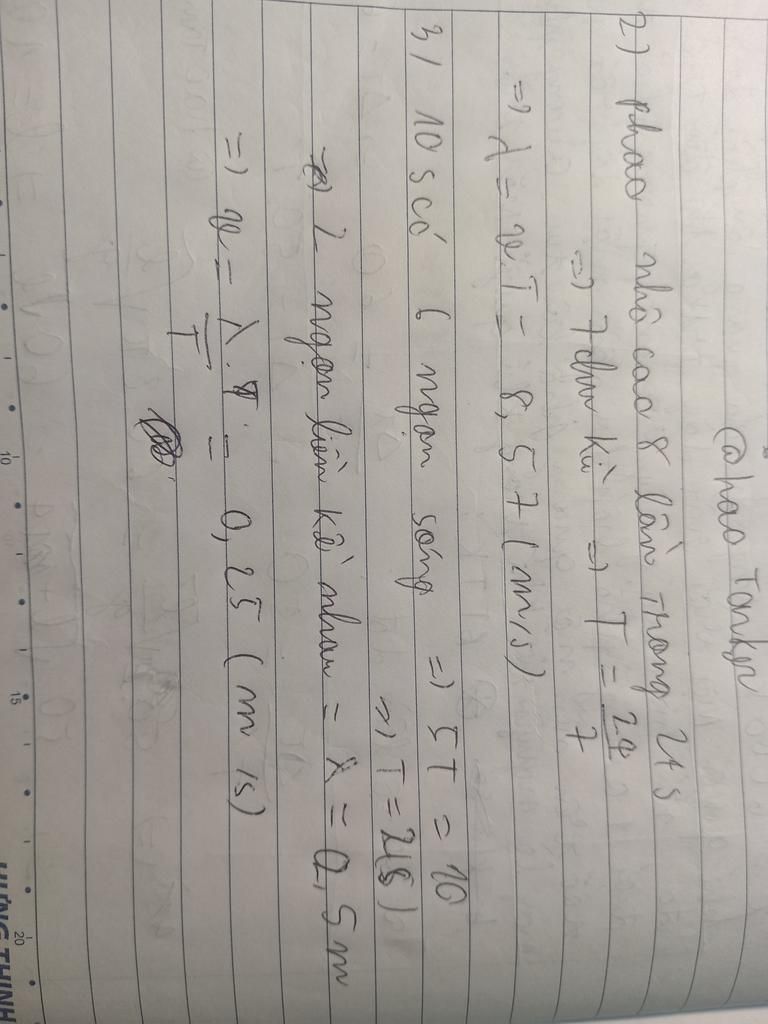 @hao Tankn
2) phao nhô cao 8 lần trong 24 s
=> 7 chu kì => T = 24/7
=> λ = vT = 8,57 (m/s)
3) 10 s có 6 ngọn sóng => 5T = 10
=> T = 2(s)
=> 2 ngọn liên kề nhau = λ = 0,5 m
=> v = λ/T = 0,25 (m/s)
10
15
20
HƯNG THỊNH